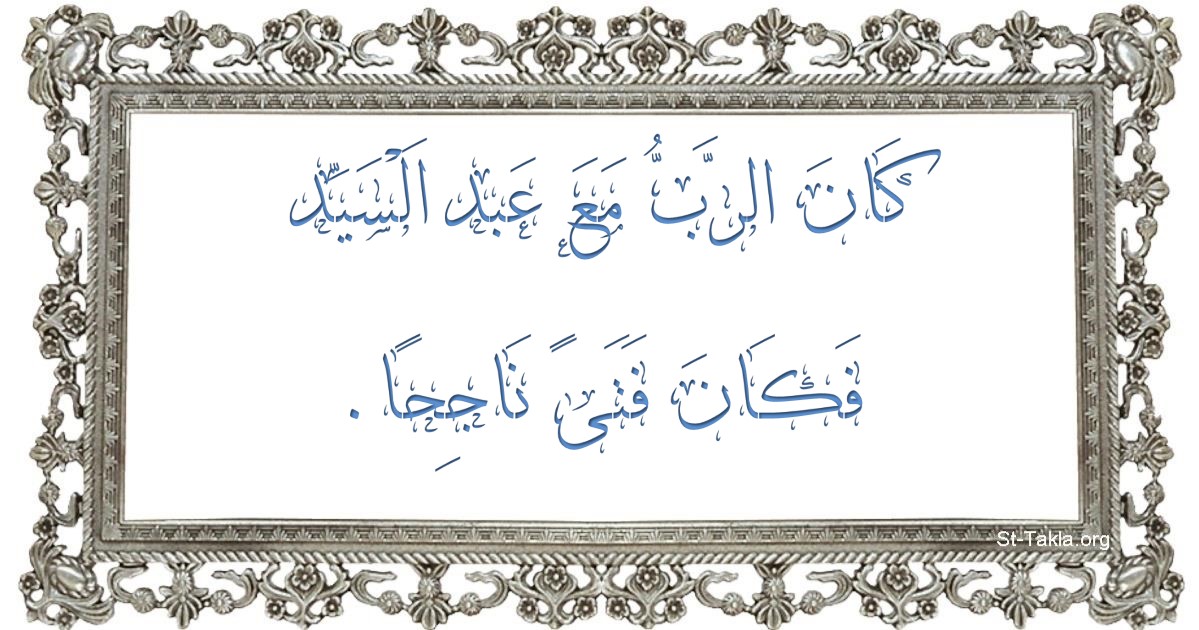 كَانَ الرَّبُّ مَعَ عَبْد اَلْسَيِّد
فَكَانَ فَتَىً نَاجِحًا .
St-Takla.org